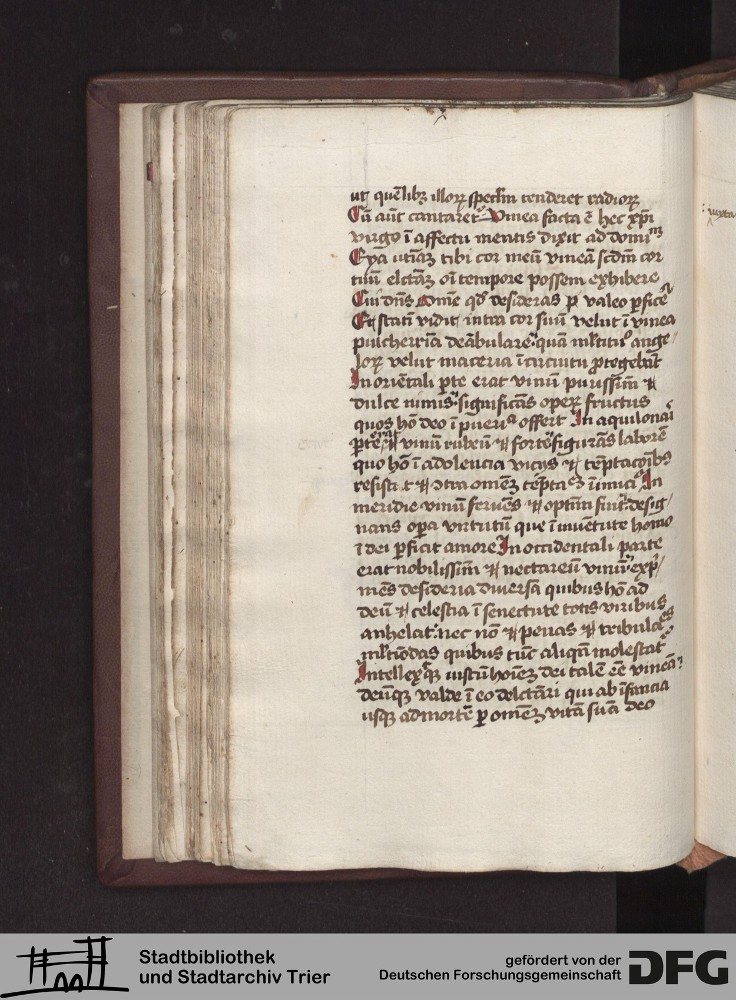 ut quēlibꝫ illoꝝ speclm̄ tenderet radioꝝ
Cū aūt cantaret᷑ Vinea facta ē hec xp̄i
virgo ī affectu mentis dixit ad domīm
Eya utinā tibi cor meū vineā scd̄m cor
tuū elctām oī tempore possem exhibere
Cui dn̄s Om̄e qd̄ desideras ꝑ valeo ꝑficē
Et statī vidit intra cor suū velut ī vinea
pulcherriā deābulare quā mltitu° ange
loꝝ velut maceria ī circuitu ꝓtegebāt
In oriētali ꝑte erat vinū purissim̄ ⁊
dulce nimis significās operꝝ fructus
quos hō deo ī pueri⁹ offert In aquilonaī
ꝑte erat vinū rubeū ⁊ forte figurās laborē
quo hō ī adolencia vicijs ⁊ tēptacōibꝫ
resistit ⁊ ꝯtra omēꝫ tēpta inimici In
meridie vinū feruēs ⁊ optīm fuit desig
nans opa virtutū que ī iuuētute homo
ī dei ꝑficit amore In occidentali parte
erat nobilissim̄ ⁊ nectareū vinū exp̄
mēs desideria diuersa quibus hō ad
deū ⁊ celestia ī senectute totis viribus
anhelat nec nō ⁊ penas ⁊ tribulacōes
mltiōdas quibus tūc aliqn̄ molestat᷑
Intellexitqꝫ iustū hoīeꝫ dei talē eē vineā
deūqꝫ valde ī eo delctāri qui ab īfancia
usqꝫ ad mortē ꝑ omēꝫ vitā suā deo
iuxta
Stadtbibliothek
und Stadtarchiv Trier
gefördert von der
Deutschen Forschungsgemeinschaft
DFG